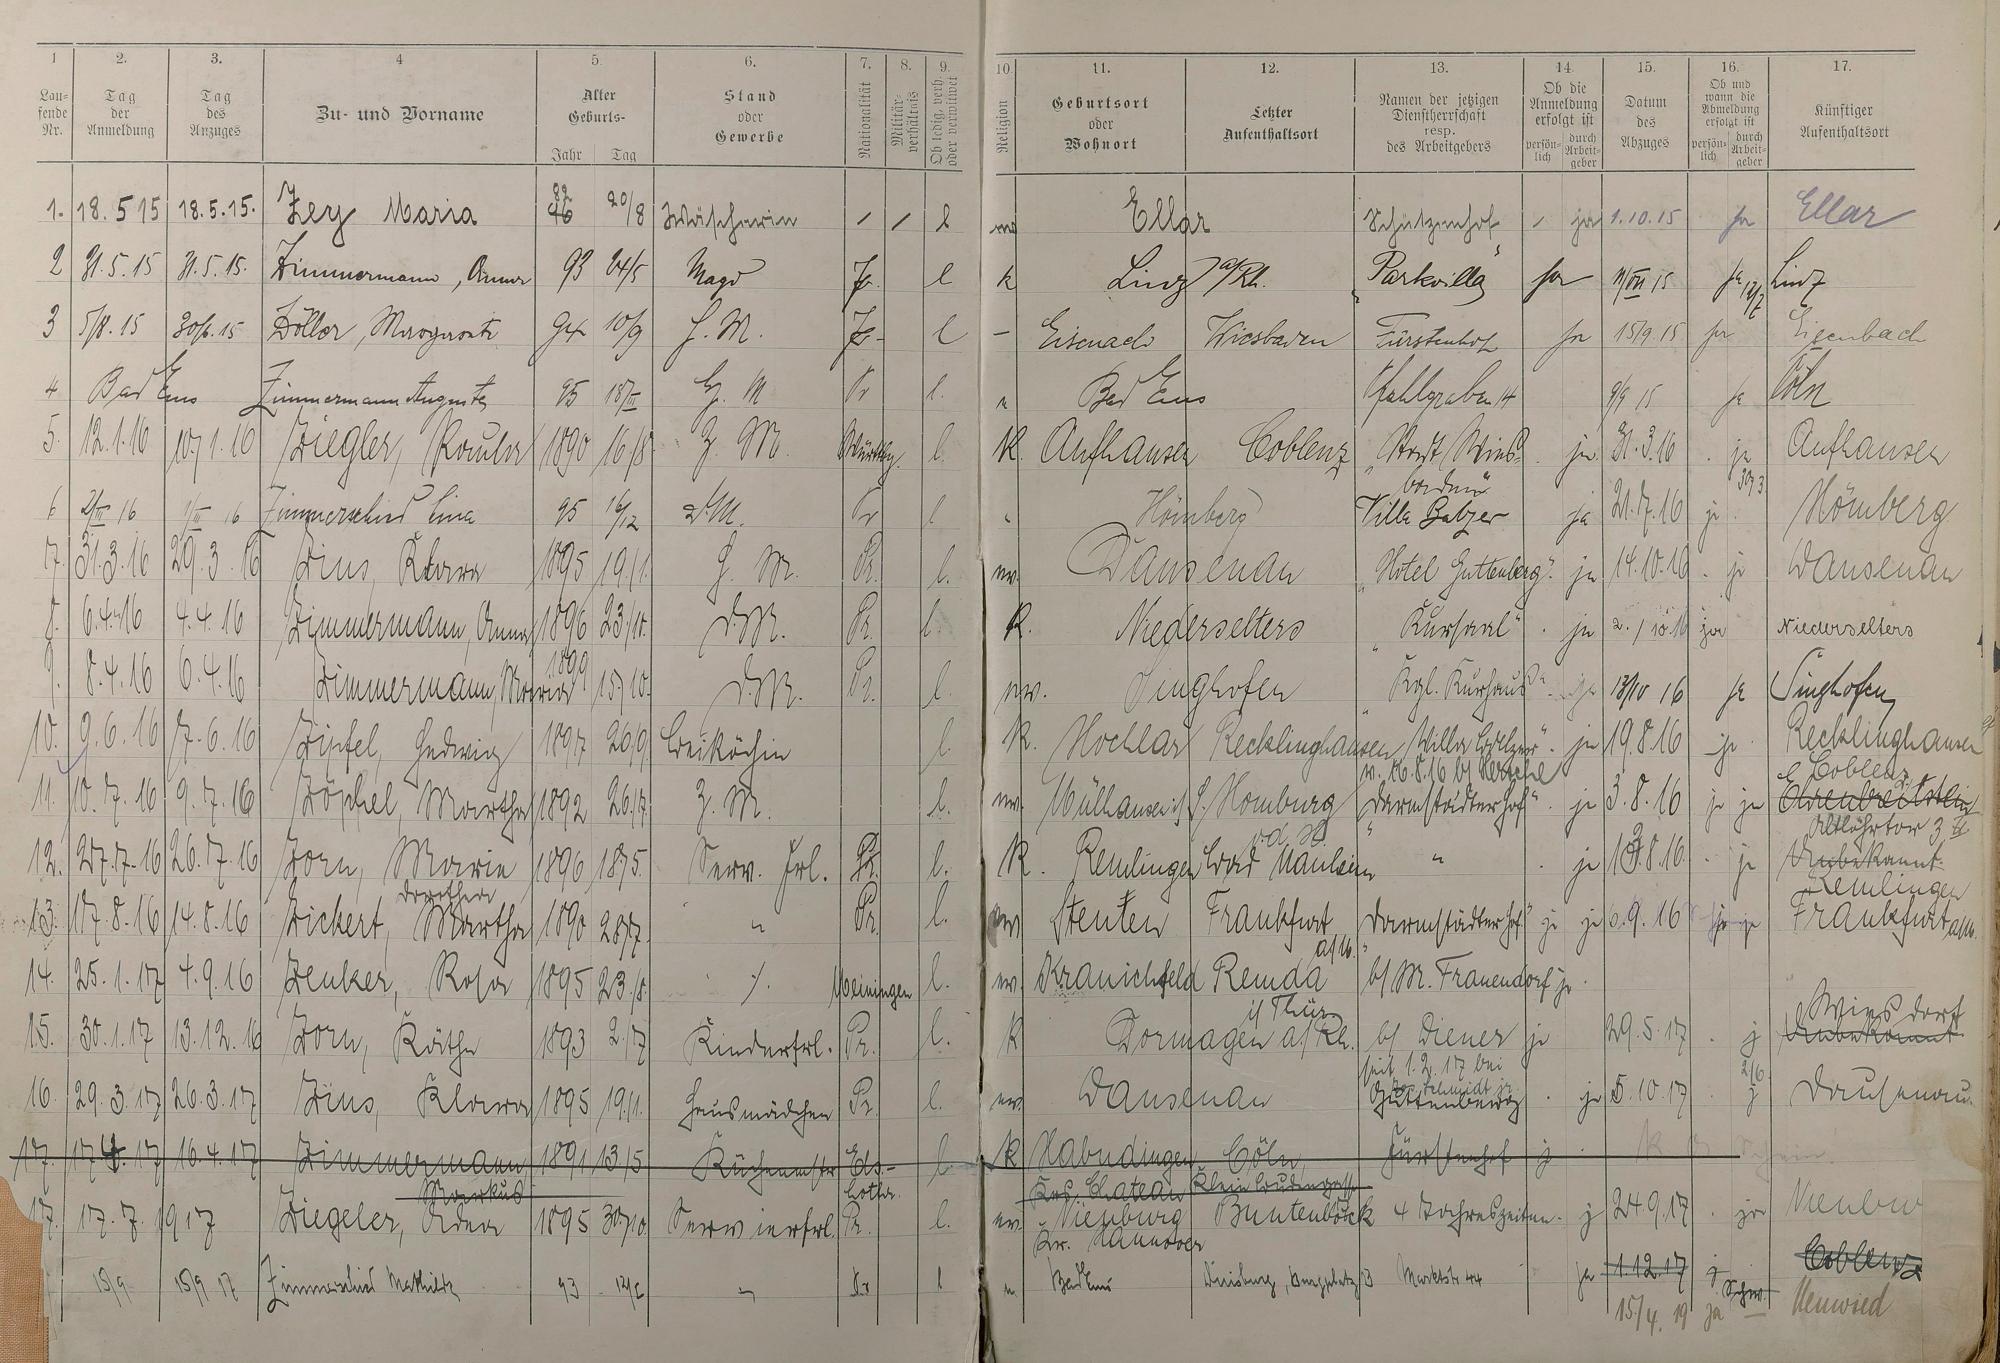 1 2. 3. 4 5 6. 7. 8. 9. 10. 11. 12. 13. 14. 15. 16. 17.
Lau-fende Nr. Tag der Anmeldung Tag des Anzuges Zu- und Vorname Alter Geburts- Jahr Tag Stand oder Gewerbe Nationalität Militär-verhältnis Ob ledig, verh. oder verwitwet Religion Geburtsort oder Wohnort Letzter Aufenthaltsort Namen der jetzigen Dienstherrschaft resp. des Arbeitgebers Ob die Anmeldung erfolgt ist persön-lich durch Arbeit-geber Datum des Abzuges Ob und wann die Abmeldung erfolgt ist persön-lich durch Arbeit-geber Künftiger Aufenthaltsort
1. 18.5 15 18.5.15. Zey Maria 20/8 Wäscherin / / l Ellar Schützenhof / ja 1.10.15 ja Ellar
2 31.5.15 31.5.15. Zimmermann, Anna 93 24/5 Magd l k Linz a/Rh. "Parkvilla" ja 15 ja Linz
3 5/8.15 15 Zöller, Margarete 94 10/9 H. M. l - Eisenach Wiesbaden Fürstenhof ja 15/9.15 ja Eisenbach
4 Bad Ems Zimmermann Auguste 95 18/III M Pr l. Bad Ems Pfahlgraben 14 9/9 15 ja Cöln
5. 12.1.16 10.1.16 Ziegler, Paula 1890 16/8 Z. M. Württbg. l. K. Aufhausen Coblenz "Stadt Wies-baden" ja 31.3.16 ja 30/3 Aufhausen
6 2/III 16 1/III 16 Zimmerschied Lina 95 16/12 M. Pr l Hömberg Villa Balzer ja 21.7.16 ja Hömberg
7. 31.3.16 29.3.16 Zins, Klara 1895 19/1. H. M. Pr. l. ev. Dausenau "Hotel Guttenberg" ja 14.10.16 ja Dausenau
8. 6.4.16 4.4.16 Zimmermann, Anna 1896 23/10. D.M. Pr. l. K. Niederselters "Kursaal" ja 2./10 16 ja Niederselters
9. 8.4.16 6.4.16 Zimmermann, Maria 1899 15/10. D.M. Pr. l. ev. Singhofen "Kgl. Kurhaus" ja 13/10 16 ja Singhofen
10. 9.6.16 7.6.16 Zipfel, Hedwig 1897 26/9. Beiköchin l. K. Hochlar Recklinghausen "Villa Balzer" ja 19.8.16 ja Recklinghausen
11. 10.7.16 9.7.16 Zöphel, Martha 1892 26/7. Z. M. l. ev. Mülhausen i/ Homburg v. d. H. "Darmstädter Hof" ja 3.8.16 ja ja Ehrenbreitstein Coblenz Altlöhrtor 3 II
12. 27.7.16 26.7.16 Zorn, Maria 1896 18/5. Serv. Frl. Pr. l. K. Remlingen Bad Nauheim " ja 8.16 ja Unbekannt Remlingen
13. 17.8.16 14.8.16 Zickert, Dorothea Martha 1890 28/7. " Pr. l. ev Stenten Frankfurt a/M. "Darmstädter Hof" ja ja 6.9.16 ja Frankfurt a/M.
14. 25.1.17 4.9.16 Zenker, Rosa 1895 23/8. ·/. Meiningen l. ev. Kranichfeld Remda i/Thür. b/ M. Frauendorf ja
15. 30.1.17 13.12.16 Zorn, Käthe 1893 2/7 Kinderfrl. Pr. l. K Dormagen a/Rh. b/ Diener ja seit 1.2.17 bei Schmidt 29.5.17 j 2/6. Unbekannt Wiesdorf
16. 29.3.17 26.3.17 Zins, Klara 1895 19/1. Hausmädchen Pr. l. ev. Dausenau Guttenberg ja 5.10.17 j Dausenau
17. 17.4.17 16.4.17 Zimmermann Markus 1891 13/5 Küchenmstr Els.-Lothr. l K Habudingen Krs. Chateau Cöln, Klein Fürstenhof j
17. 17.7.1917 Ziegeler, 1895 30/10. Servierfrl. Pr. l. ev. Nienburg Kr. Hannover Buntenbock 4 Jahreszeiten j 24.9.17 ja
15/9 15/9 17 Zimmerschied Mathilde 93 " Pr l Bad Ems Duisburg, Burgplatz 3 Marktstr 44 ja 1.12.17 j Schw. Coblenz
15/4. 19 ja Neuwied